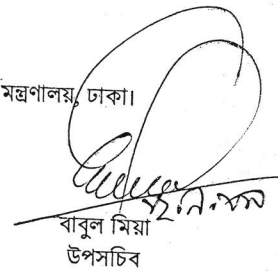 মন্ত্রণালয়, ঢাকা।
বাবুল মিয়া
উপসচিব